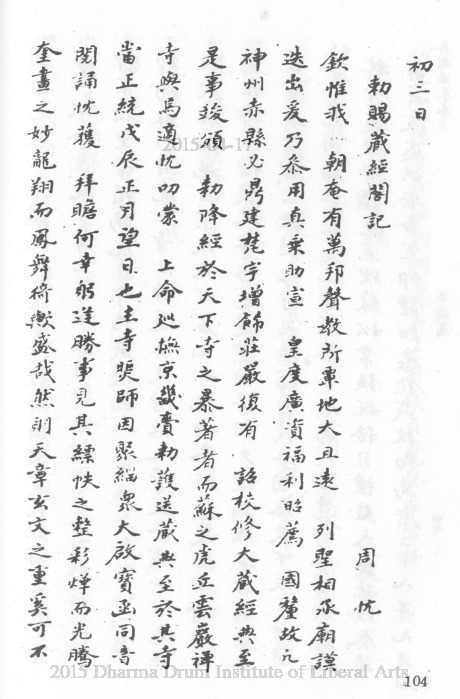 初三日
勅賜藏經閣記
周忱
欽惟我 朝奄有萬邦聲教所覃地大且遠 列聖相承廟謨
迭出爰乃叅用真乘助宣 皇度廣資福利昭薦 國釐故凡
神州赤縣必鼎建梵宇增飾莊嚴復有 詔校修大藏經典至
是事竣頒 勅降經於天下寺之暴著者而蘇之虎丘雲巖禪
寺與焉適忱叨蒙 上命巡撫京畿賫勅護送藏典至於其寺
當正統戊辰正月望日也主寺 師因聚緇衆大啟寶函同音
閱誦忱獲 拜瞻何幸躬逢勝事見其縹帙之整彩燁而光騰
奎畫之妙龍翔而鳳舞猗歟盛哉然則天章玄文之重奚可不
2015-04-17
2015 Dharma Drum Institute of Liberal Arts
104